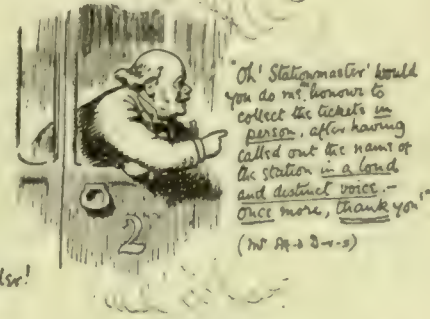 "Oh! Stationmaster! would
you do me the honour to
collect the tickets in
person, after having
called out the name of
the station in a loud
and distinct voice. –
Once more, thank you!"
(Mr D-v-s)
2
ler!